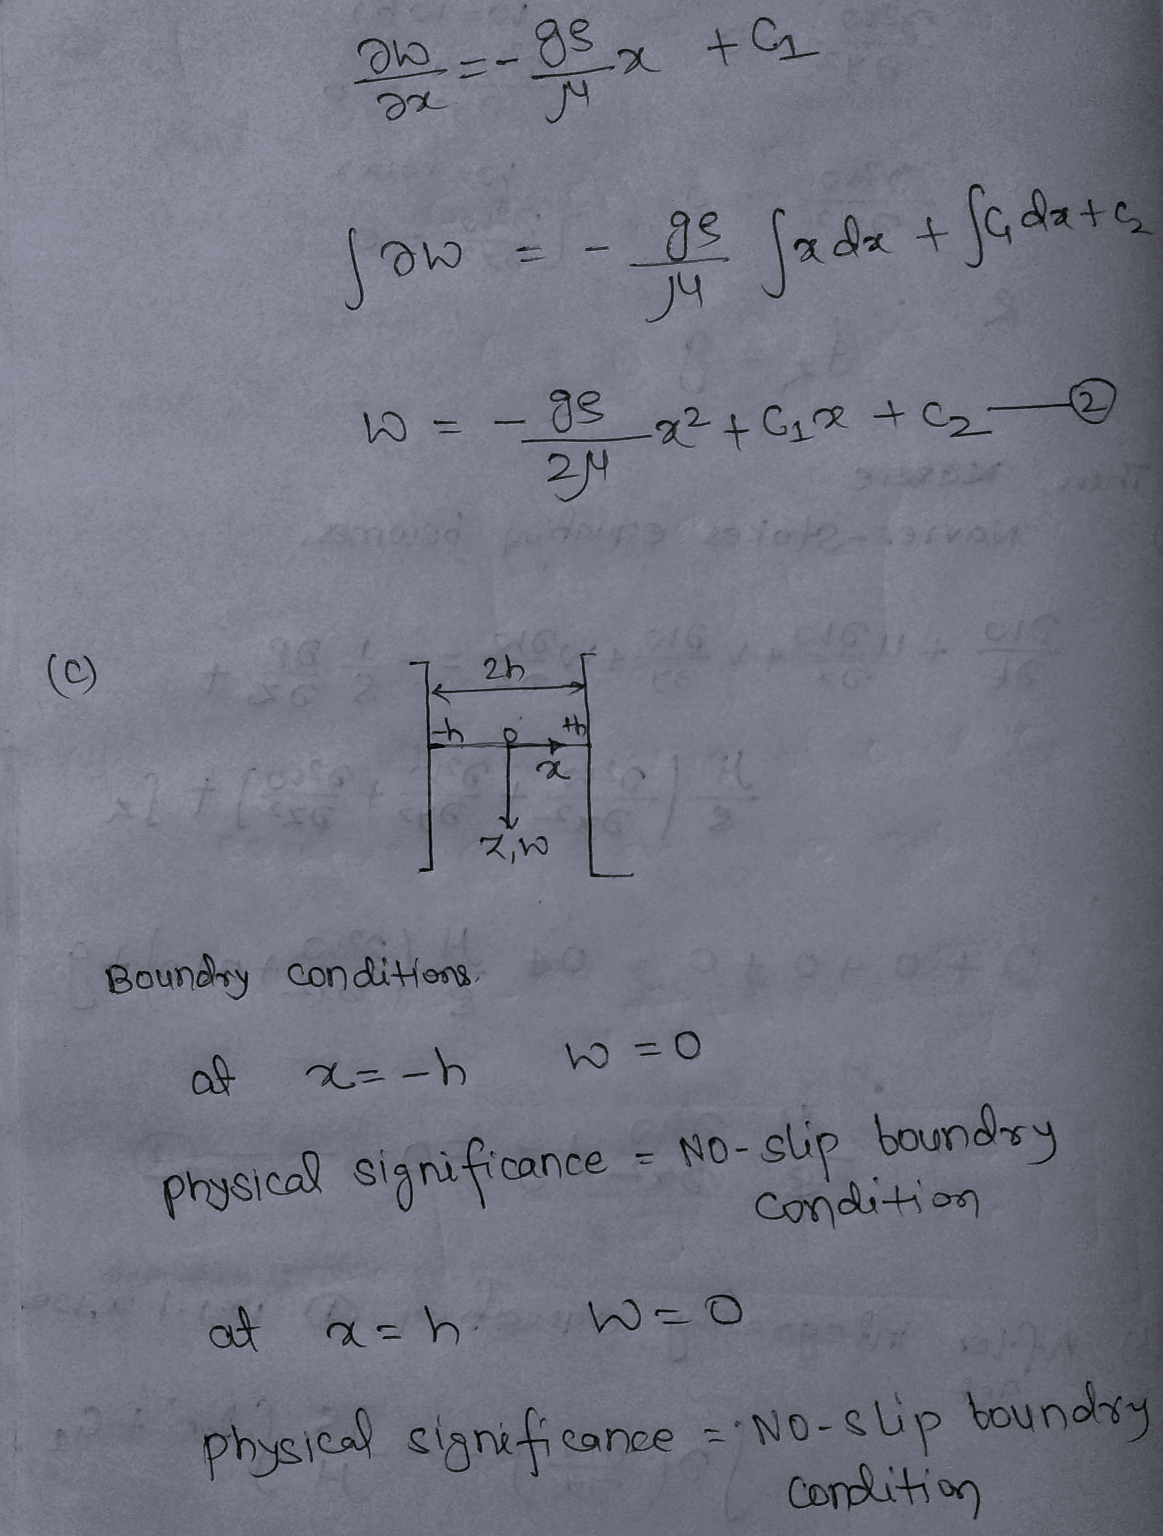 ∂w/∂x = - gρ/μ x + C₁
∫∂w = - gρ/μ ∫x dx + ∫C₁ dx + C₂
w = - gρ/2μ x² + C₁x + C₂ — ②
(C)
2h
-h 0 +h
x
z,w
Boundry conditions.
at x=-h w=0
physical significance = NO-slip boundry
condition
at x=h. w=0
physical significance = NO-slip boundry
condition